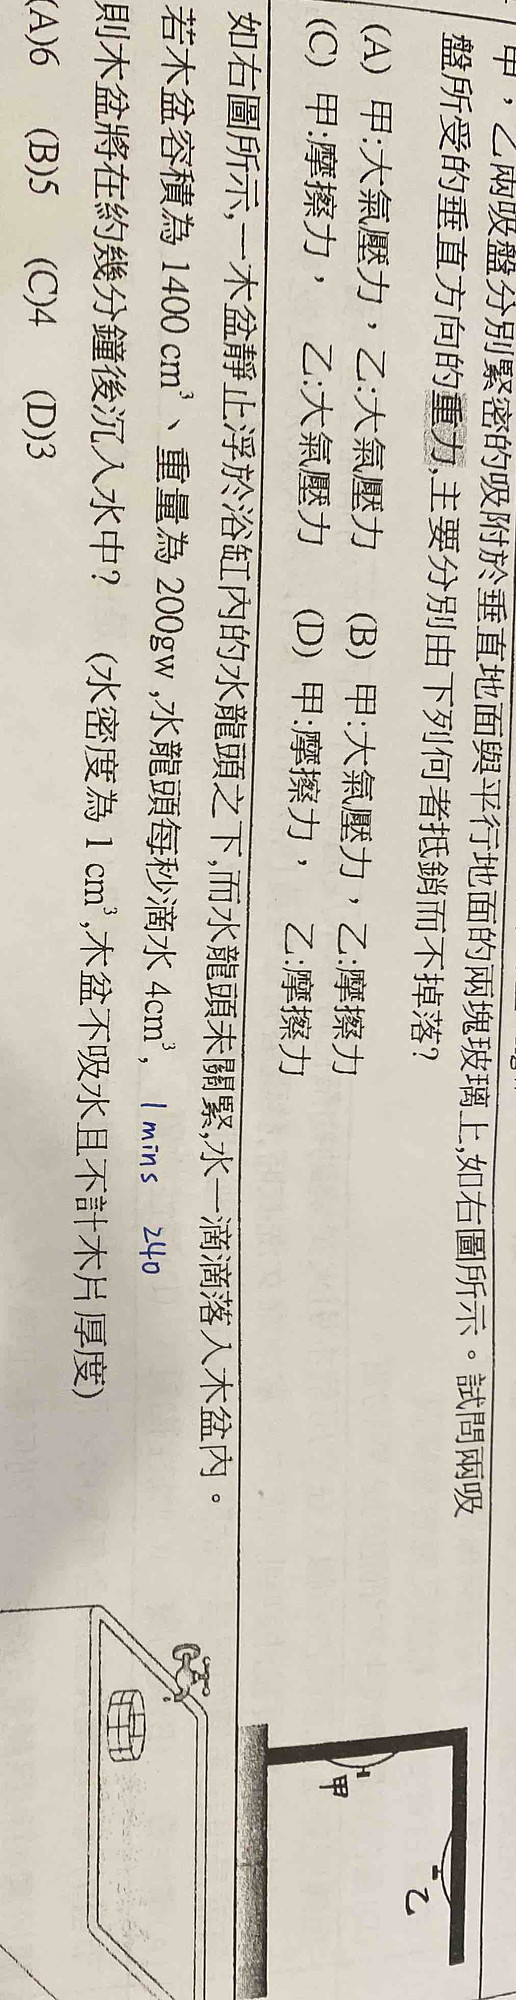 甲，乙兩吸盤分別緊密的吸附於垂直地面與平行地面的兩塊玻璃上,如右圖所示。試問兩吸
盤所受的垂直方向的重力,主要分別由下列何者抵銷而不掉落?
(A) 甲:大氣壓力，乙:大氣壓力 (B) 甲:大氣壓力，乙:摩擦力
(C) 甲:摩擦力， 乙:大氣壓力 (D) 甲:摩擦力， 乙:摩擦力
甲
乙
如右圖所示,一木盆靜止浮於浴缸內的水龍頭之下,而水龍頭未關緊,水一滴滴落入木盆內。
若木盆容積為 1400 cm³、重量為 200gw,水龍頭每秒滴水 4cm³, 1 mins 240
則木盆將在約幾分鐘後沉入水中? (水密度為 1 cm³,木盆不吸水且不計木片厚度)
(A)6 (B)5 (C)4 (D)3